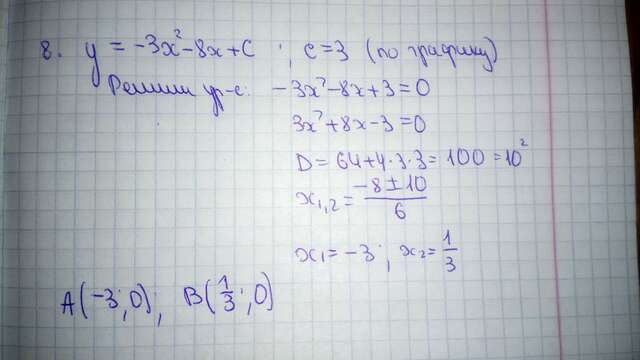 8. y = -3x² - 8x + c ; c = 3 (по графику)
Решим ур-е: -3x² - 8x + 3 = 0
3x² + 8x - 3 = 0
D = 64 + 4·3·3 = 100 = 10²
x₁,₂ = (-8 ± 10)/6
x₁ = -3 ; x₂ = 1/3
A(-3; 0); B(1/3; 0)